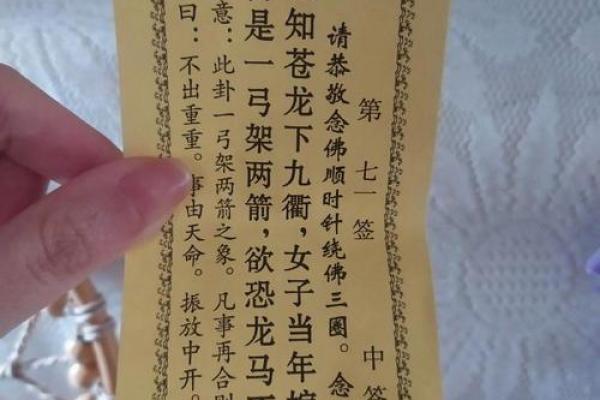 第七一签 中签
请恭敬念佛顺时针绕佛三圈。念
知苍龙下九衢，女子当年嫁
是一弓架两箭，欲恐龙马
意：此卦一弓架两箭之象。凡事再合则
曰：不出重重。事由天命。振放中开。